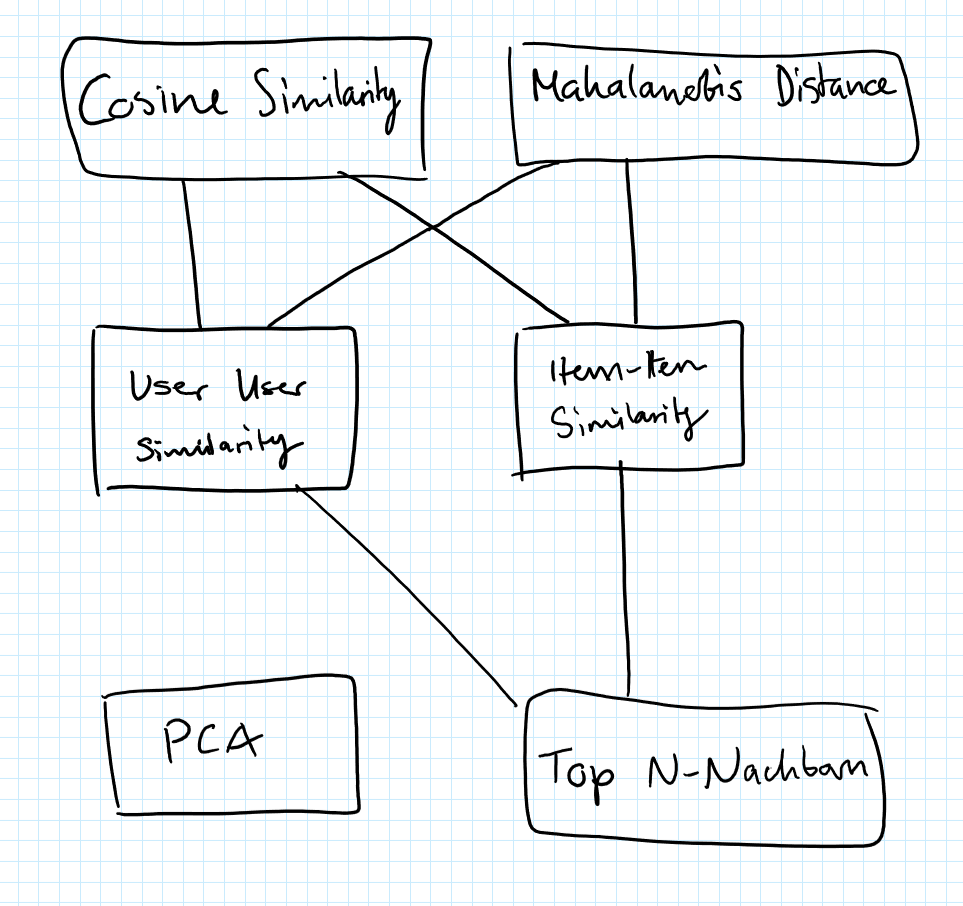 Cosine Similarity
Mahalanobis Distance
User User
Similarity
Item-Item
Similarity
PCA
Top N-Nachbarn